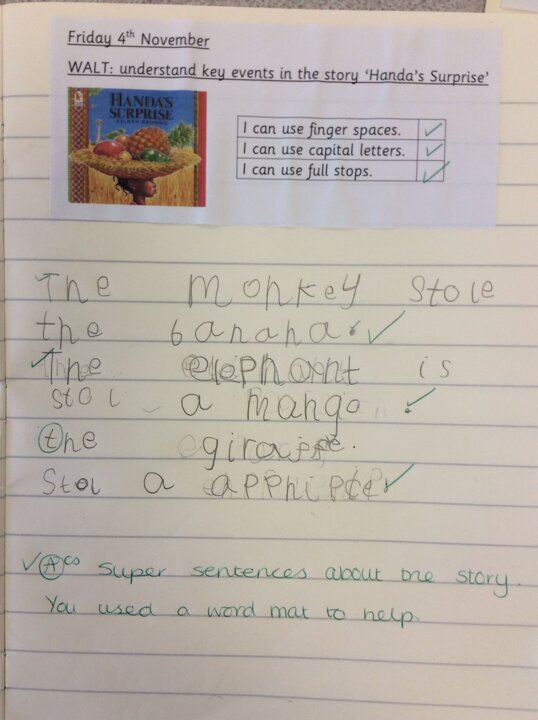 Friday 4th November
WALT: understand key events in the story 'Handa's Surprise'
HANDA'S
SURPRISE
EILEEN BROWNE
I can use finger spaces. ✓
I can use capital letters. ✓
I can use full stops. ✓
The monkey stole
the banana. ✓
The elephant is
stol a mango. ✓
the giraffe.
Stol a
✓ A cs Super sentences about the story.
You used a word mat to help.